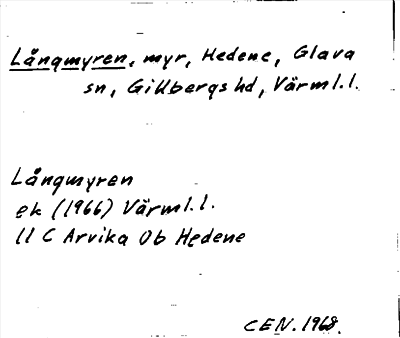 Långmyren, myr, Hedene, Glava
sn, Gillbergs hd, Värml.l.
Långmyren
ek (1966) Värml.l.
11 C Arvika 0b Hedene
CEN. 1968.